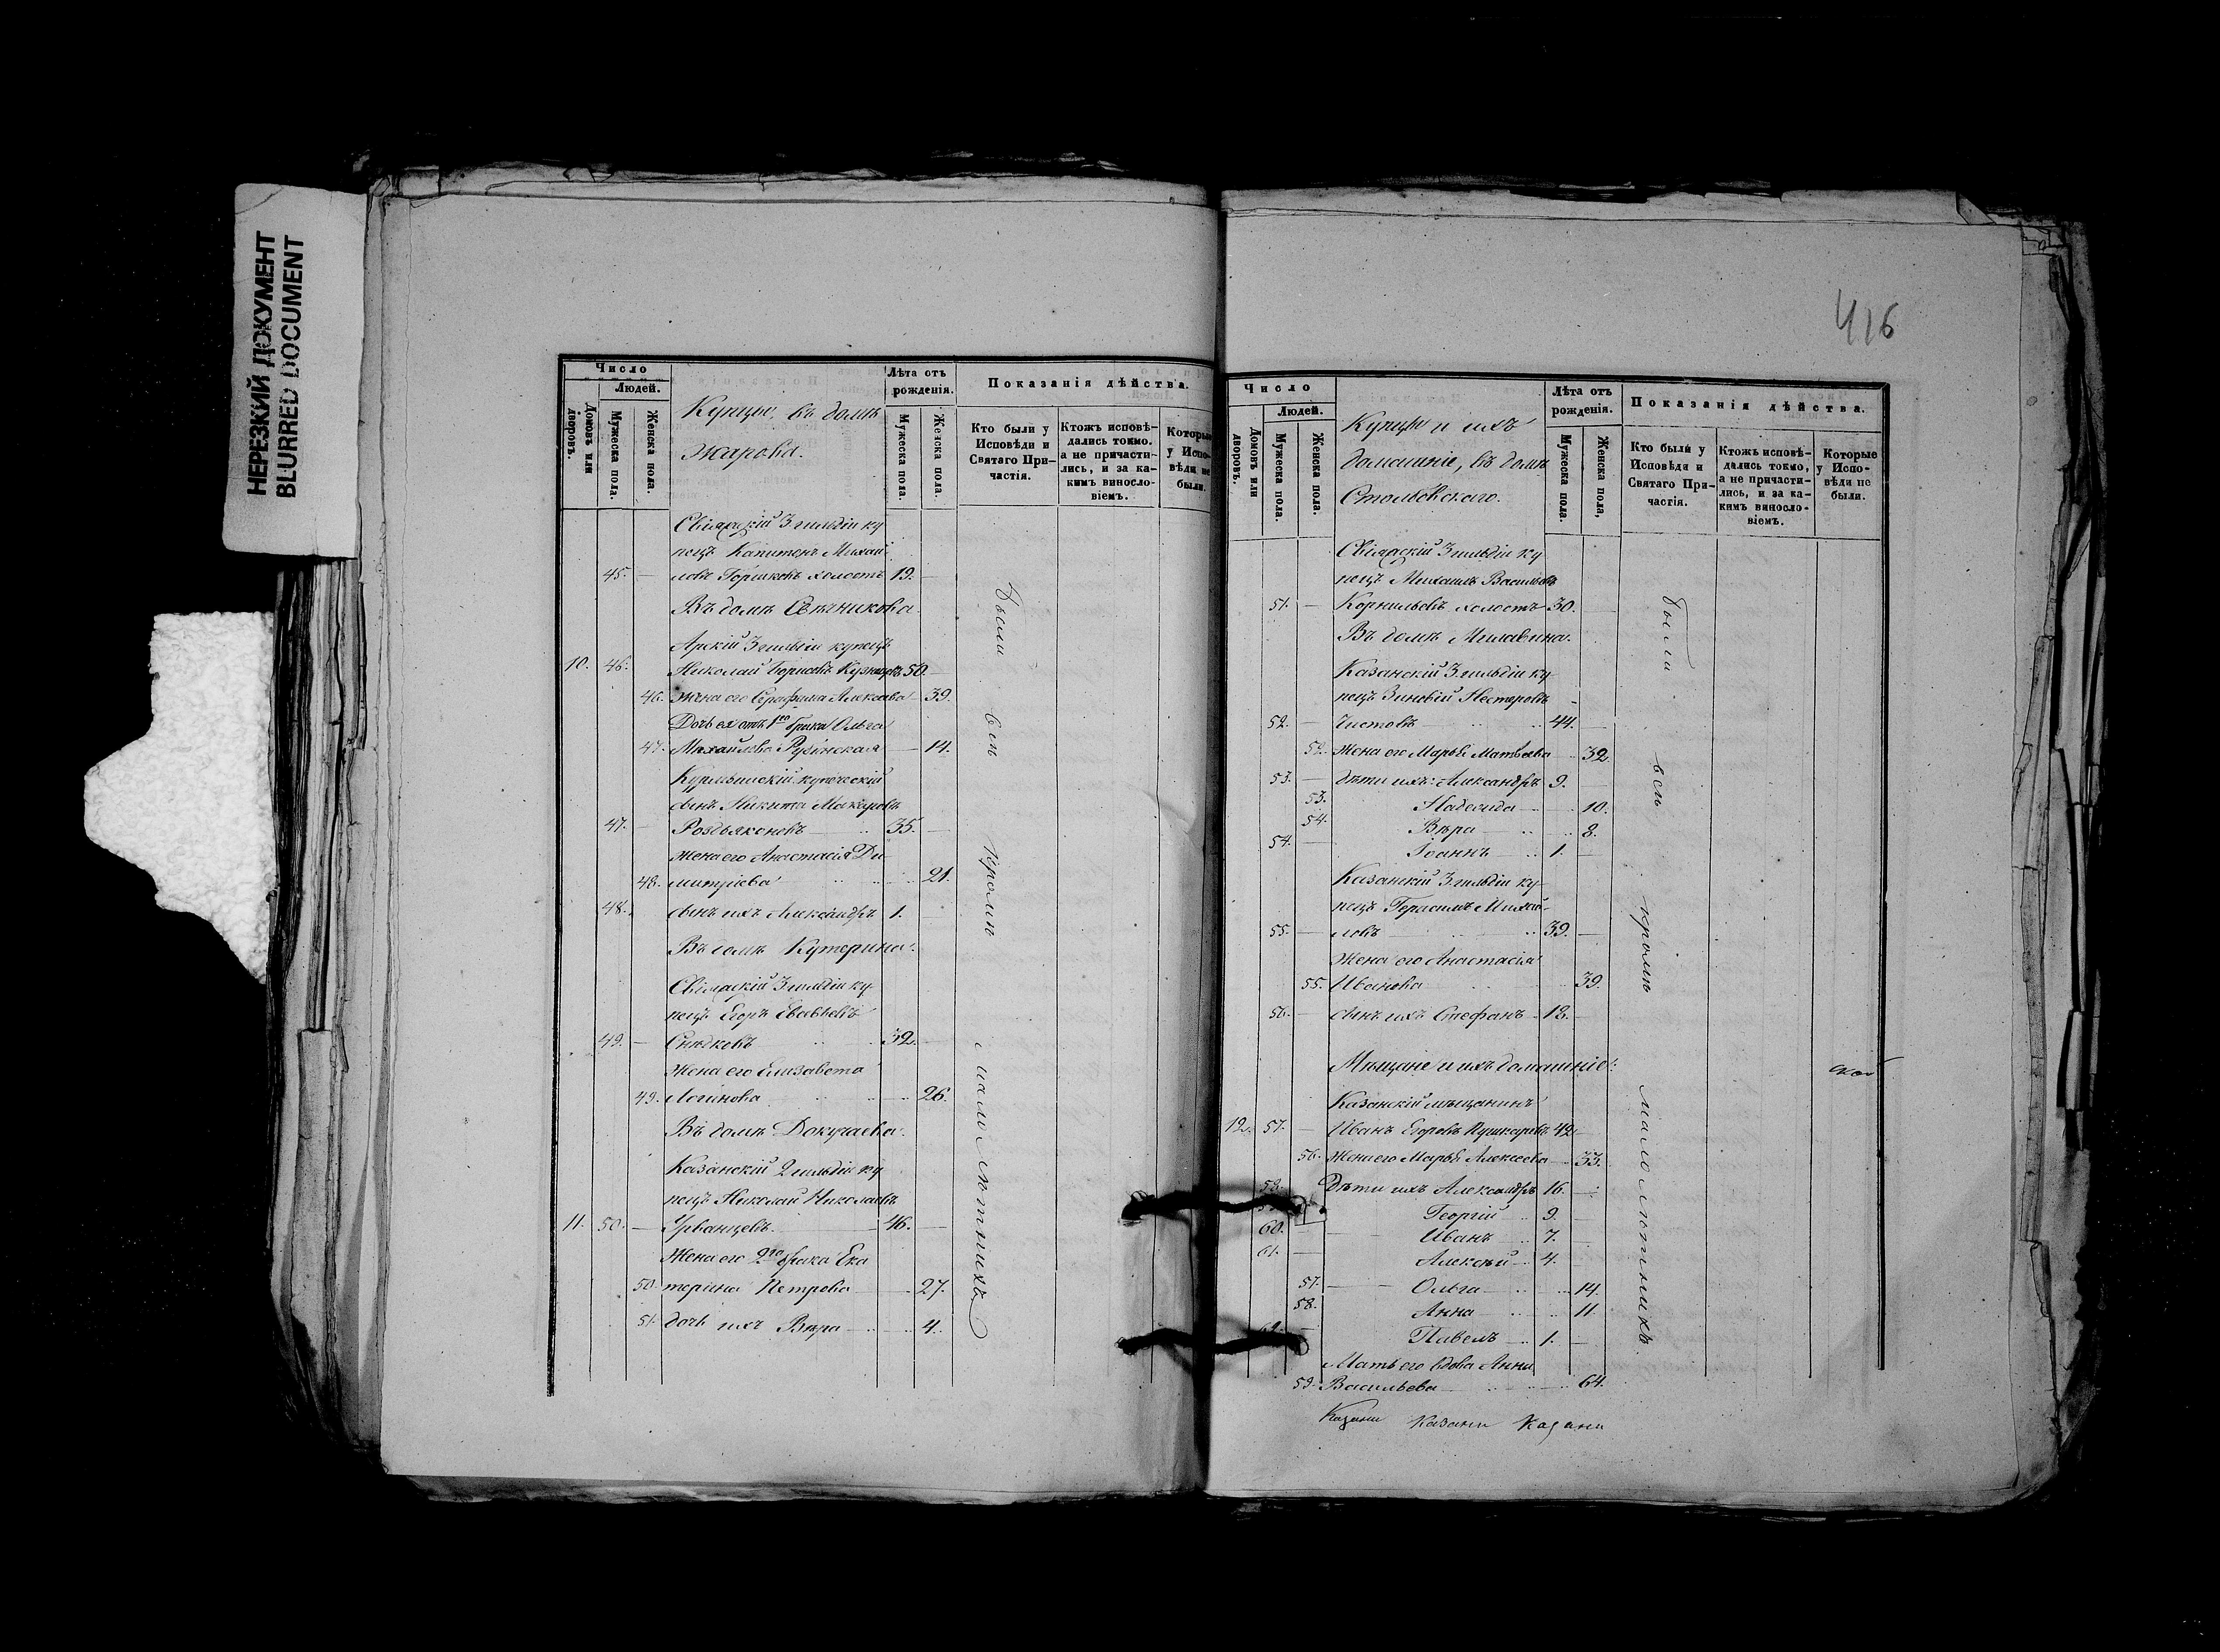 НЕРЕЗКИЙ ДОКУМЕНТ
BLURRED DOCUMENT
Число
Людей.
Домовъ или дворовъ.
Мужеска пола.
Женска пола.
Купцы, въ домѣ
Жарова.
Лѣта отъ рожденія.
Мужеска пола.
Женска пола.
Показанія дѣйства.
Кто были у Исповѣди и Святаго Причастія.
Ктожъ исповѣдались токмо, а не причастились, и за какимъ винословіемъ.
Которые у Исповѣди не были.
Свіяжскій 3 гильдіи ку
пецъ Капитонъ Михай
45. — ловъ Горшковъ холостъ 19. —
Въ домѣ Свѣчникова
Арскій 3 гильдіи купецъ
10. 46. Николай Борисовъ 50.
46. Жена его Серафима Алексѣева 39.
Дочь ея отъ 1го брака Ольга
47. Михайлова — 14.
купеческій
сынъ Никита Макаровъ
47. — 35. —
жена его Анастасія Ди
48. митріева 21.
48. сынъ ихъ Александръ 1. —
Въ домѣ Кутерина.
Свіяжскій 3 гильдіи ку
пецъ Егоръ Евсевьевъ
49. — 32. —
жена его Елизавета
49. Логинова 26.
Въ домѣ Докучаева.
Казанскій 2 гильдіи ку
пецъ Николай Николаевъ
11. 50. — Урванцевъ. 46. —
Жена его 2го брака Ека
50. терина Петрова 27.
51. дочь ихъ Вѣра 4.
Были всѣ кромѣ малолѣтнихъ
416
Число
Людей.
Домовъ или дворовъ.
Мужеска пола.
Женска пола.
Купцы и ихъ
домашніе, въ домѣ
Столбовскаго.
Лѣта отъ рожденія.
Мужеска пола.
Женска пола,
Показанія дѣйства.
Кто были у Исповѣди и Святаго Причастія.
Ктожъ исповѣдались токмо, а не причастились, и за какимъ винословіемъ.
Которые у Исповѣди не были.
Свіяжскій 3 гильдіи ку
пецъ Михаилъ Васильевъ
51. — Корнильевъ холостъ 30. —
Въ домѣ Милавина.
Казанскій 3 гильдіи ку
пецъ Зиновій Нестеровъ
52. — Чистовъ 44. —
52. жена его Марья Матвѣева 32.
53. — дѣти ихъ: Александръ 9. —
53. Надежда 10.
54. Вѣра 8.
54. — Іоаннъ 1. —
Казанскій 3 гильдіи ку
пецъ Герасимъ Михай
55. — ловъ 39. —
Жена его Анастасія
55. Иванова 39.
56. — сынъ ихъ Стефанъ 18. —
Мѣщане и ихъ домашніе:
Казанскій мѣщанинъ
12. 57. — Иванъ Егоровъ Пушкаревъ 42. —
56. Жена его Марья Алексѣева 33.
58. Дѣти ихъ Александръ 16. —
Георгій 9. —
60. — Иванъ 7. —
61. — Алексѣй 4. —
57. Ольга 14.
58. Анна 11.
62. — Павелъ 1. —
Мать его вдова Анна
59. Васильева 64.
Были всѣ кромѣ малолѣтнихъ.
Казани Казани Казани